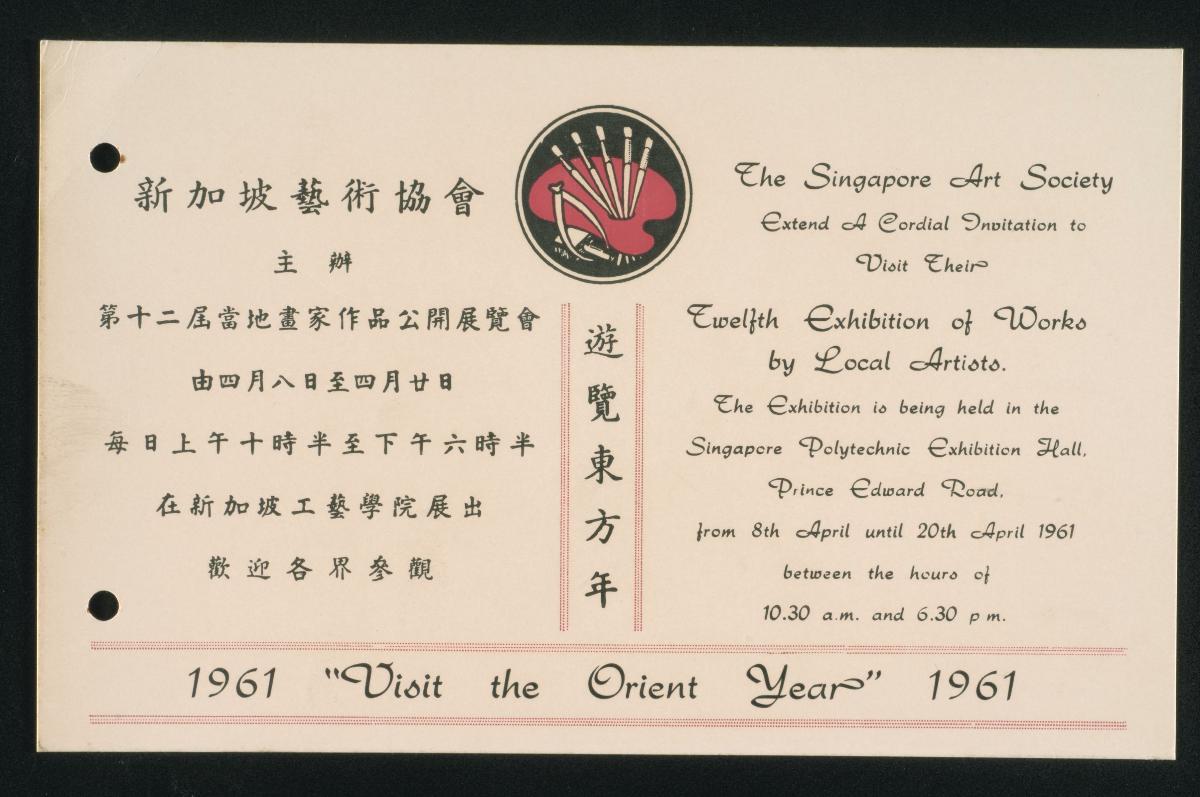 新加坡藝術協會
主辦
第十二屆當地畫家作品公開展覽會
由四月八日至四月廿日
每日上午十時半至下午六時半
在新加坡工藝學院展出
歡迎各界參觀
遊覽東方年
The Singapore Art Society
Extend A Cordial Invitation to
Visit Their
Twelfth Exhibition of Works
by Local Artists.
The Exhibition is being held in the
Singapore Polytechnic Exhibition Hall,
Prince Edward Road,
from 8th April until 20th April 1961
between the hours of
10.30 a.m. and 6.30 p m.
1961 "Visit the Orient Year" 1961